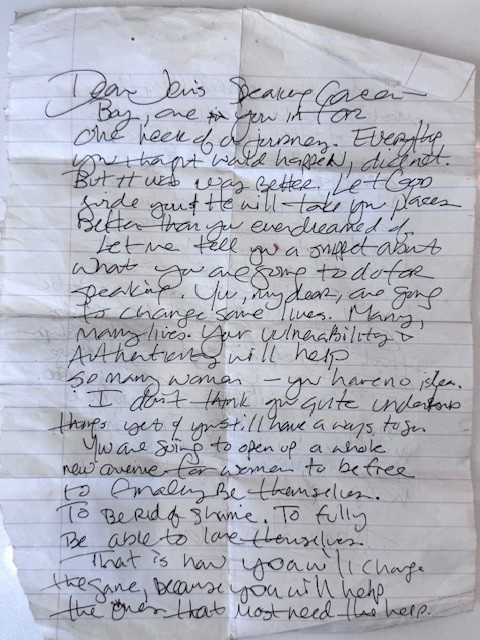 Dear Jen's Speaking Career —
Boy, are you in for
one heck of a journey. Everything
you thought would happen, did not.
But it was way Better. Let God
guide you & He will take you places
Better than you ever dreamed of.
Let me tell you a snippet about
what you are going to do for
speaking. You, my dear, are going
to change some lives. Many,
many lives. Your vulnerability &
Authenticity will help
so many women — you have no idea.
I don't think you quite understand
things yet & you still have a ways to go
You are going to open up a whole
new avenue for women to be free
to finally Be themselves.
To Be Rid of Shame. To fully
Be able to love themselves.
That is how you will change
the game, because you will help
the ones that most need the help.